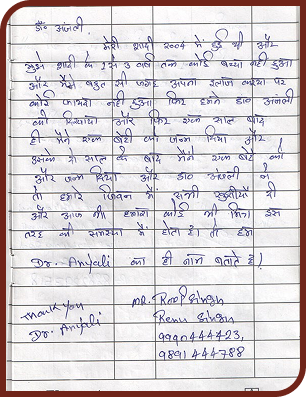 डॉ. अंजली
मेरी शादी 2004 में हुई थी और
मुझे शादी के 3 वर्ष तक कोई बच्चा नहीं हुआ
और मैंने बहुत सी जगह अपना इलाज कराया पर
कोई फायदा नहीं हुआ फिर हमने डा० अंजली
को दिखाया और फिर एक साल बाद
ही मैंने एक बेटी को जन्म दिया और
उसके साल के बाद मैंने एक बेटे को
और जन्म दिया और डा० अंजली ने
तो हमारे जिवन में सभी खुशीयाँ दी
और आज भी हमारा कोई भी मित्र इस
तरह की समस्या में होता है। तो हम
Dr. Anjali का ही नाम बताते है।
Thank You
Dr. Anjali
Mr. Singh
Renu Singh
9990444423,
9891444788